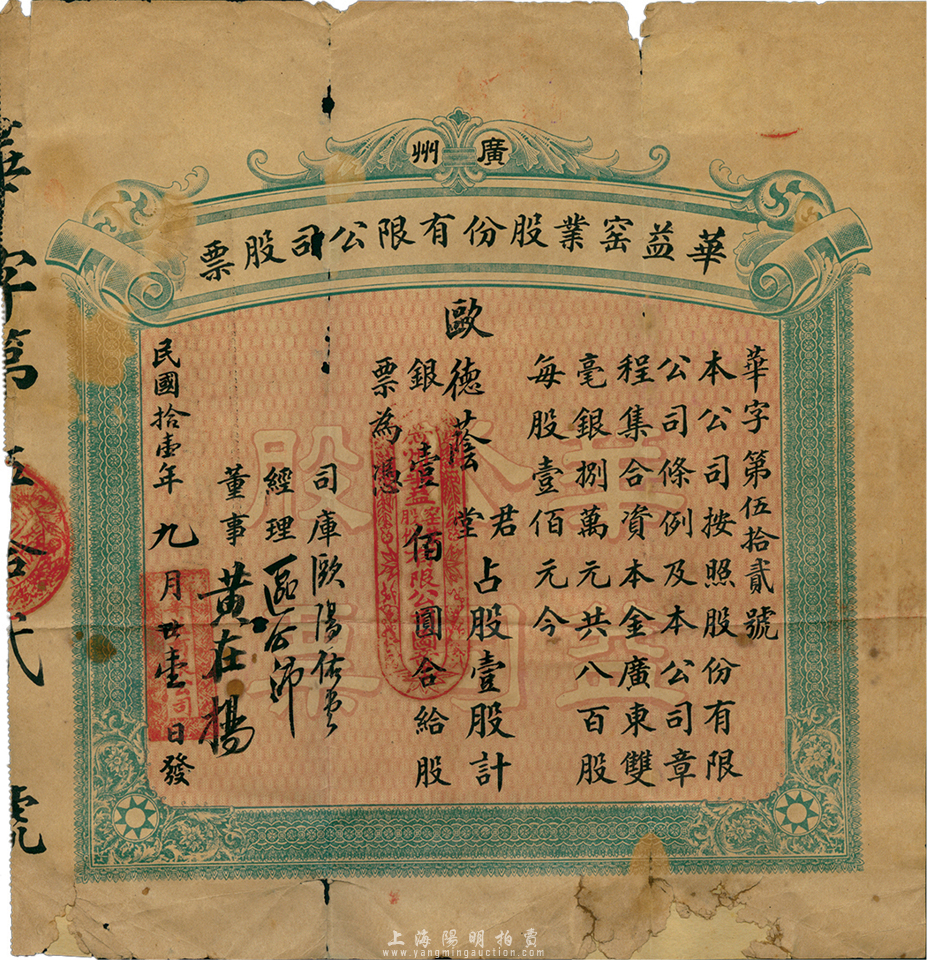 廣州
華益窑業股份有限公司股票
華字第伍拾貳號
本公司按照股份有限
公司條例及本公司章
程集合資本金廣東雙
毫銀捌萬元共八百股
每股壹佰元今
歐德蔭堂君占股壹股計
銀壹佰圓合給股
票為憑
司庫
經理
董事 黃在楊
民國拾壹年九月廿壹日發
華字第伍拾弍號
華益
股票
上海陽明拍賣
www.yangmingauction.com